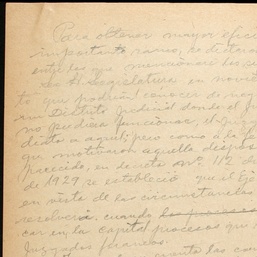 Para obtener mayor efic
importante ramo, se declara
entre las que mencionaré las se
H. Legislatura en novie
to que podrían conocer de neg
un Distrito Judicial donde el ju
no pudiera funcionar, el juzga
dista a aquél; pero como a la fe
que motivaron aquella dispos
parecido, en decreto Nº 112 d
de 1929 se estableció que el Eje
en vista de las circunstancias
resolviera, cuando los jueces
car en la capital procesos que
Juzgados foráneos.
cuanto las con